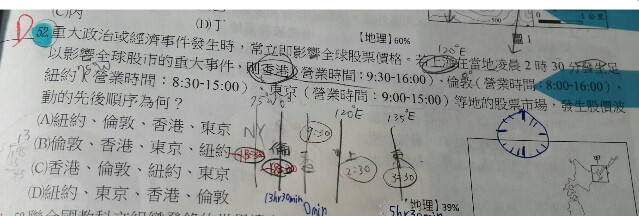 (C)丙
(D)丁
【地理】60%
圖1
D
52.重大政治或經濟事件發生時,常立即影響全球股票價格。若上海在當地凌晨2時30分發生足
120°E
以影響全球股市的重大事件,則香港(營業時間:9:30-16:00)、倫敦(營業時間:8:00-16:00)、
紐約(營業時間:8:30-15:00)、東京(營業時間:9:00-15:00)等地的股票市場,發生股價波
動的先後順序為何?
75°W 0° 120°E 135°E
(A)紐約、倫敦、香港、東京
NY
(B)倫敦、香港、東京、紐約
倫 上 東
(C)香港、倫敦、紐約、東京
18:30 2:30 3:30
(D)紐約、東京、香港、倫敦
13hr30min 0min 5hr30min
【地理】39%
甲